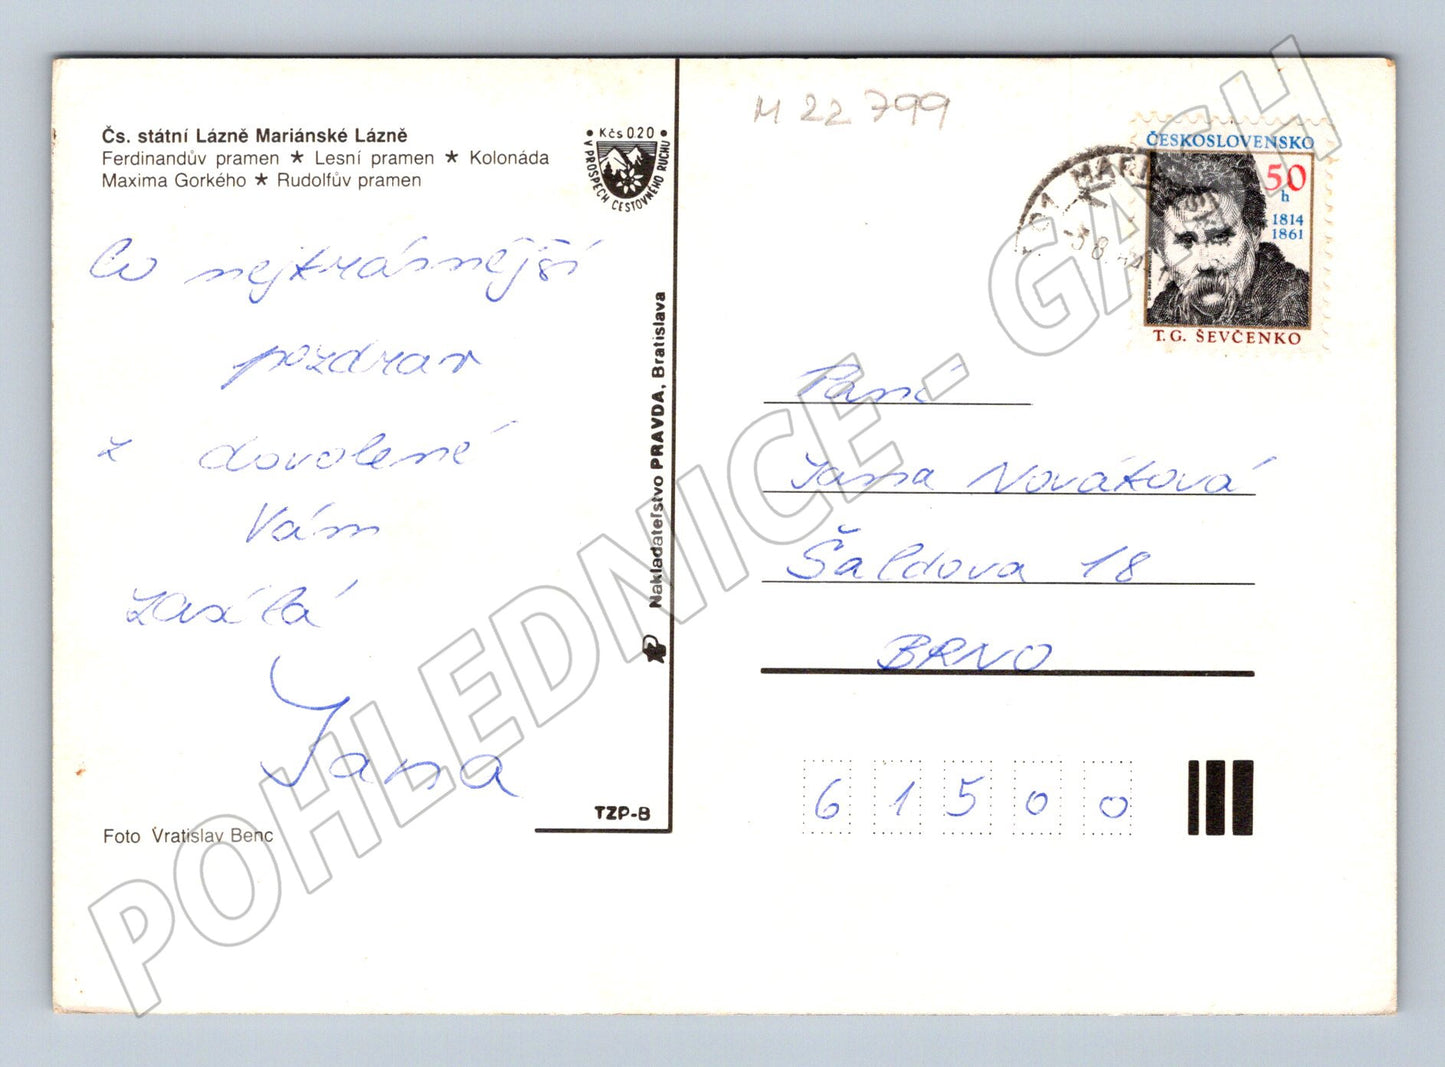 M 22 799
Čs. státní Lázně Mariánské Lázně
Ferdinandův pramen ★ Lesní pramen ★ Kolonáda
Maxima Gorkého ★ Rudolfův pramen
• Kčs 0.20 •
V PROSPĚCH CESTOVNÉHO RUCHU
Co nejkrásnější
pozdrav
z dovolené
Vám
zasílá
Jana
Foto Vratislav Benc
TZP-B
Nakladateľstvo PRAVDA, Bratislava
ČESKOSLOVENSKO
50
h
1814
1861
T. G. ŠEVČENKO
Paní
Jana Nováková
Šaldova 18
BRNO
6 1 5 0 0
POHLEDNICE - GASH